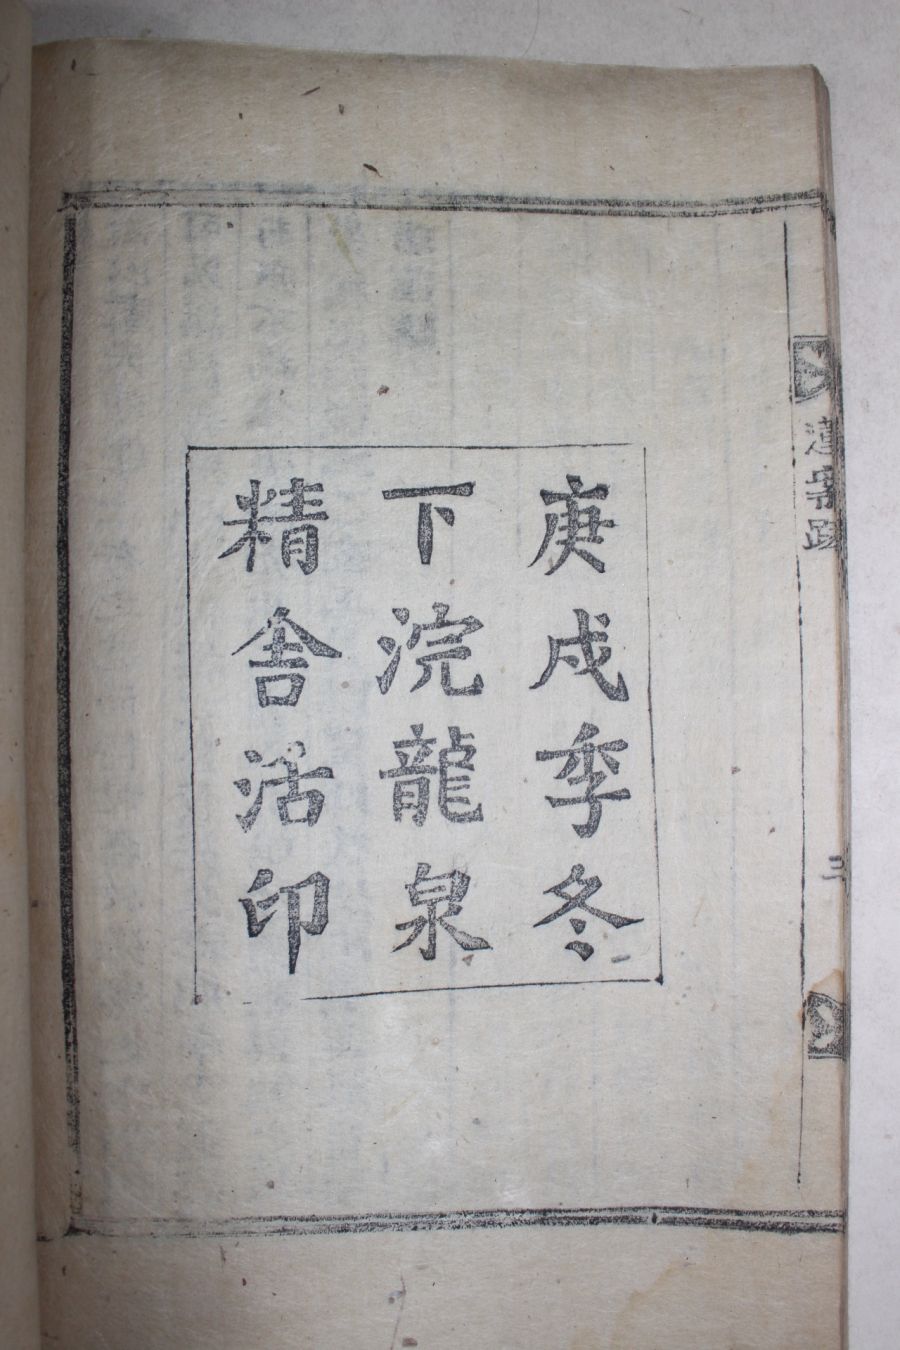 庚戌季冬
下浣龍泉
精舍活印
三